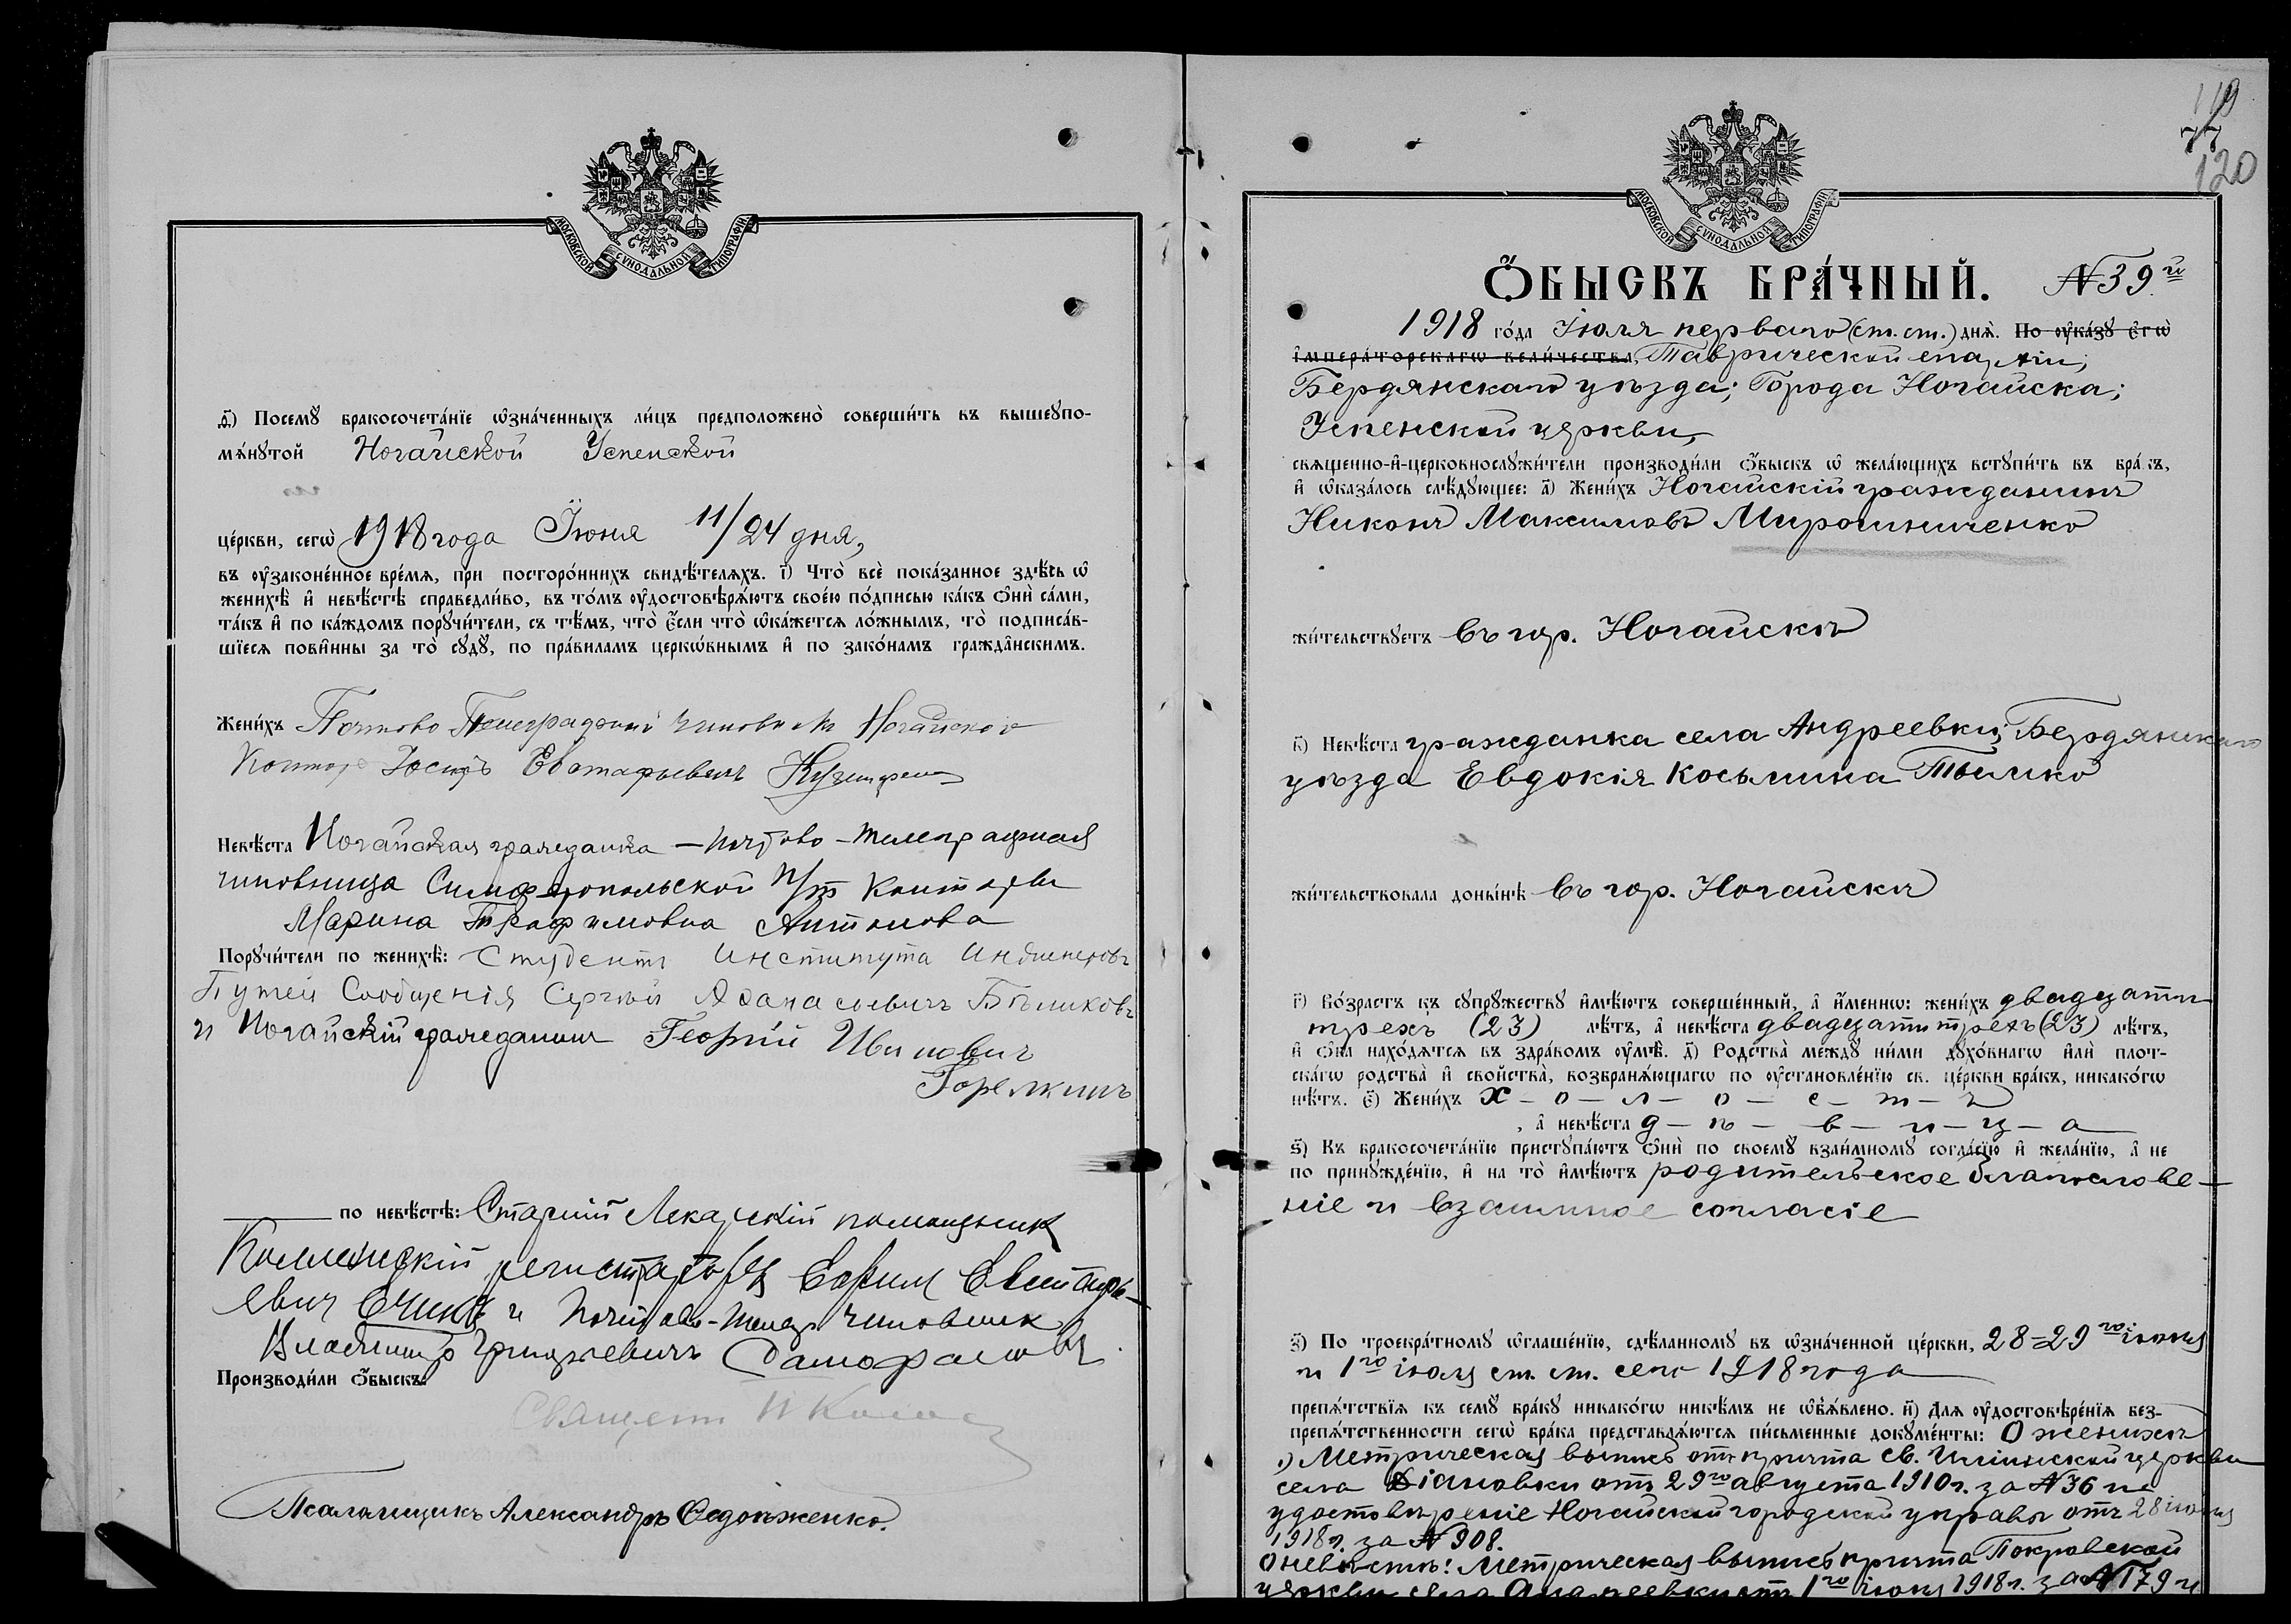 МОСКОВСКОЙ СѴНОДАЛЬНОЙ ТИПОГРАФІИ
д҃) Посемꙋ̀ бракосочета́нїе ѡ҆зна́ченныхъ ли́цъ предположено̀ соверши́ть въ вышеꙋпо-
мѧ́нꙋтой Ногайской Успенской
це́ркви, сегѡ̀ 1918 года Іюня 11/24 дня,
въ ᲂу҆законе́нное вре́мѧ, при посторо́ннихъ свидѣ́телѧхъ. і҃) Что̀ всѐ пока́занное здѣ́сь ѡ҆
женихѣ̀ и҆ невѣ́стѣ справедли́во, въ то́мъ ᲂу҆достовѣрѧ́ютъ свое́ю по́дписью ка́къ ѻ҆нѝ са́ми,
та́къ и҆ по ка́ждомъ порꙋчи́тели, съ тѣ́мъ, что̀ є҆́сли что̀ ѡ҆ка́жетсѧ ло́жнымъ, то̀ подписа́в-
шїесѧ пови́нны за то̀ сꙋдꙋ̀, по пра́виламъ церкѡ́внымъ и҆ по зако́намъ гражда̑нскимъ.
Жени́хъ Почтово Телеграфный чиновник Ногайской
Контор Іосифъ Евстафьевичъ
Невѣ́ста Ногайская гражданка — почтово-телеграфная
чиновница Симферопольской п/т конторы
Марина Трофимовна Антонова
Порꙋчи́тели по женихѣ̀: Студентъ Института Инженеровъ
Путей Сообщенія Сергѣй Афанасіевичъ Бѣликовъ
и Ногайскій гражданинъ Георгій Ивановичъ
Горелкинъ
по невѣ́стѣ: Старшій Лекарскій помощникъ
Коллежскій регистраторъ Ефимъ Евстафь-
евич и Почтово-телегр чиновник
Владимир Григорьевичъ
Производи́ли ѻ҆́быскъ:
Священ
Псаломщикъ Александръ Федоженко.
119
77
120
МОСКОВСКОЙ СѴНОДАЛЬНОЙ ТИПОГРАФІИ
Ѻ҆́БЫСКЪ БРА́ЧНЫЙ. №39й
1918 го́да Іюля перваго (ст. ст.) днѧ̀. По ᲂу҆ка́зꙋ є҆гѡ̀
і҆мпера́торскагѡ вели́чества, Таврической епархіи,
Бердянскаго уѣзда; Города Ногайска;
Успенской церкви,
свѧще́нно-и҆-церковнослꙋжи́тели производи́ли ѻ҆́быскъ ѡ҆ жела́ющихъ встꙋпи́ть въ бра́къ,
и҆ ѡ҆каза́лось слѣ́дꙋющее: а҃) Жени́хъ Ногайскій гражданинъ
Никонъ Максимовъ Мирошниченко
жи́тельствꙋетъ въ гор. Ногайскѣ
в҃) Невѣ́ста гражданка села Андреевки, Бердянскаго
уѣзда Евдокія Косьмина Тымко
жи́тельствовала доны́нѣ въ гор. Ногайскѣ
г҃) Во́зрастъ къ сꙋпрꙋ́жествꙋ и҆мѣ́ютъ соверше́нный, а҆ и҆́меннѡ: жени́хъ двадцати
трехъ (23) лѣ́тъ, а҆ невѣ́ста двадцати трехъ (23) лѣ́тъ,
и҆ ѻ҆́ба нахо́дѧтсѧ въ здра́вомъ ᲂу҆мѣ̀. д҃) Родства̀ междꙋ̀ ни́ми дꙋхо́внагѡ и҆лѝ плот-
ска́гѡ родства̀ и҆ свойства̀, возбранѧ́ющагѡ по ᲂу҆становле́нїю св. це́ркви бра́къ, никако́гѡ
нѣ́тъ. є҃) Жени́хъ х-о-л-о-с-т-ъ
, а҆ невѣ́ста д-ѣ-в-и-ц-а
ѕ҃) Къ бракосочета́нїю пристꙋпа́ютъ ѻ҆нѝ по своемꙋ̀ взаи́мномꙋ согла́сїю и҆ жела́нїю, а҆ не
по принꙋжде́нїю, и҆ на то̀ и҆мѣ́ютъ родительское благослове-
ніе и взаимное согласіе
з҃) По троекра́тномꙋ ѡ҆глаше́нїю, сдѣ́ланномꙋ въ ѡ҆зна́ченной це́ркви, 28=29го іюня
и 1го іюля ст. ст. сего 1918 года
препѧ́тствїѧ къ семꙋ̀ бра́кꙋ никако́гѡ никѣ́мъ не ѡ҆б̾ѧ́влено. и҃) Для ᲂу҆достовѣре́нїѧ без-
препѧ́тственности сегѡ̀ бра́ка представлѧ́ютсѧ пи́сьменные докꙋме́нты: О женихѣ
1) Метрическая выпись отъ причта Св. Ильинской церкви
села Діановки отъ 29го августа 1910 г. за №36 и
удостовѣреніе Ногайской городской управы отъ 28 іюня
1918 г. за №908.
О невѣстѣ: Метрическая выпись причта Покровской
церкви села Андреевки отъ 1го іюня 1918 г. за №179 и